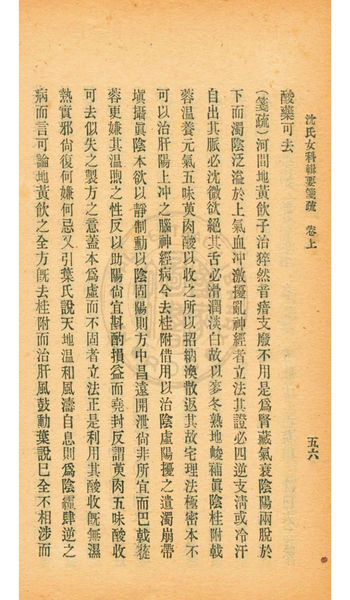 沈氏女科輯要箋疏 卷上
五六
酸藥可去
(箋疏)河間地黃飲子治猝然音瘖支廢不用是爲腎藏氣衰陰陽兩脫於
下而濁陰泛溢於上氣血冲激擾亂神經者立法其證必四逆支淸或冷汗
自出其脈必沈微欲絕其舌必滑潤淡白故以麥冬熟地峻補眞陰桂附戟
蓉溫養元氣五味萸肉酸以收之所以招納渙散返其故宅理法極密本不
可以治肝陽上冲之腦神經病今去桂附借用以治陰虛陽擾之遺濁崩帶
塡攝眞陰本欲以靜制動以陰固陽則方中昌遠開泄尙非所宜而巴戟蓯
蓉更嫌其溫煦之性反以助陽尙宜斟酌損益而堯封反謂萸肉五味酸收
可去似失之製方之意蓋本爲虛而不固者立法正是利用其酸收旣無濕
熱實邪尙復何嫌何忌又引葉氏說天地溫和風濤自息則爲陰霾肆逆之
病而言可論地黃飲之全方旣去桂附而治肝風鼓動葉說已全不相涉而